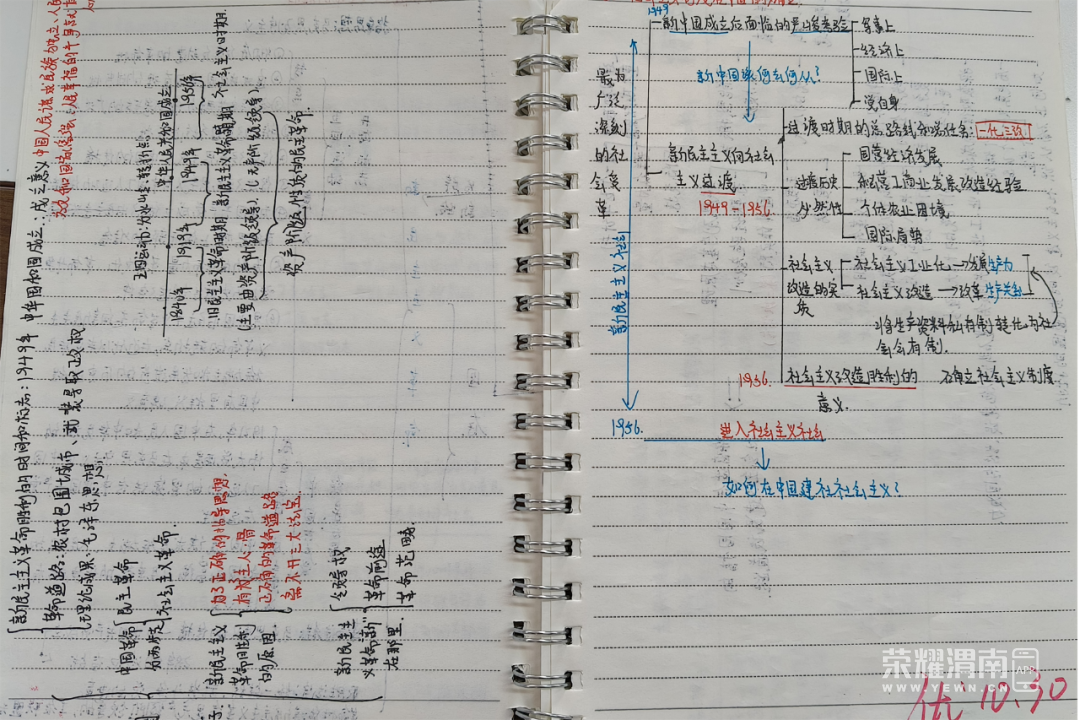 新民主主义革命胜利的时间和标志：1949年 中华人民共和国成立
革命道路：农村包围城市、武装夺取政权
理论成果：毛泽东思想
中国革命
分两步走
民主革命
社会主义革命.
新民主主义
革命胜利
的原因
为了正确的指导思想
离不开三大法宝
新民主主
义革命新
在那里.
领导权
革命前途
革命范畴
1840年
1919年
1949年
1956年
五四运动：为分水岭，转折点.
中华人民共和国成立
旧民主主义革命时期
新民主主义革命时期
社会主义时期.
(主要由资产阶级领导).
(无产阶级领导).
资产阶级性质的民主革命.
1949
新中国成立后面临的严峻考验
军事上
经济上
国际上
党自身
最为
广泛
深刻
的社
会变
革
新中国将何去何从？
过渡时期的总路线和总任务：
一化三改
新民主主义向社会
主义过渡
1949-1956
过渡历史
必然性
国营经济发展
私营工商业发展改造经验
个体农业困境
国际局势
新民主主义社会
社会主义
改造的实
质
社会主义工业化→发展生产力
社会主义改造→改革生产关系
将生产资料私有制转化为社
会公有制.
1956.
社会主义改造胜利的
意义.
确立社会主义制度
1956.
进入社会主义社会
如何在中国建社社会主义？
优 10.30
荣耀渭南
APP
WWW.YEWN.CN